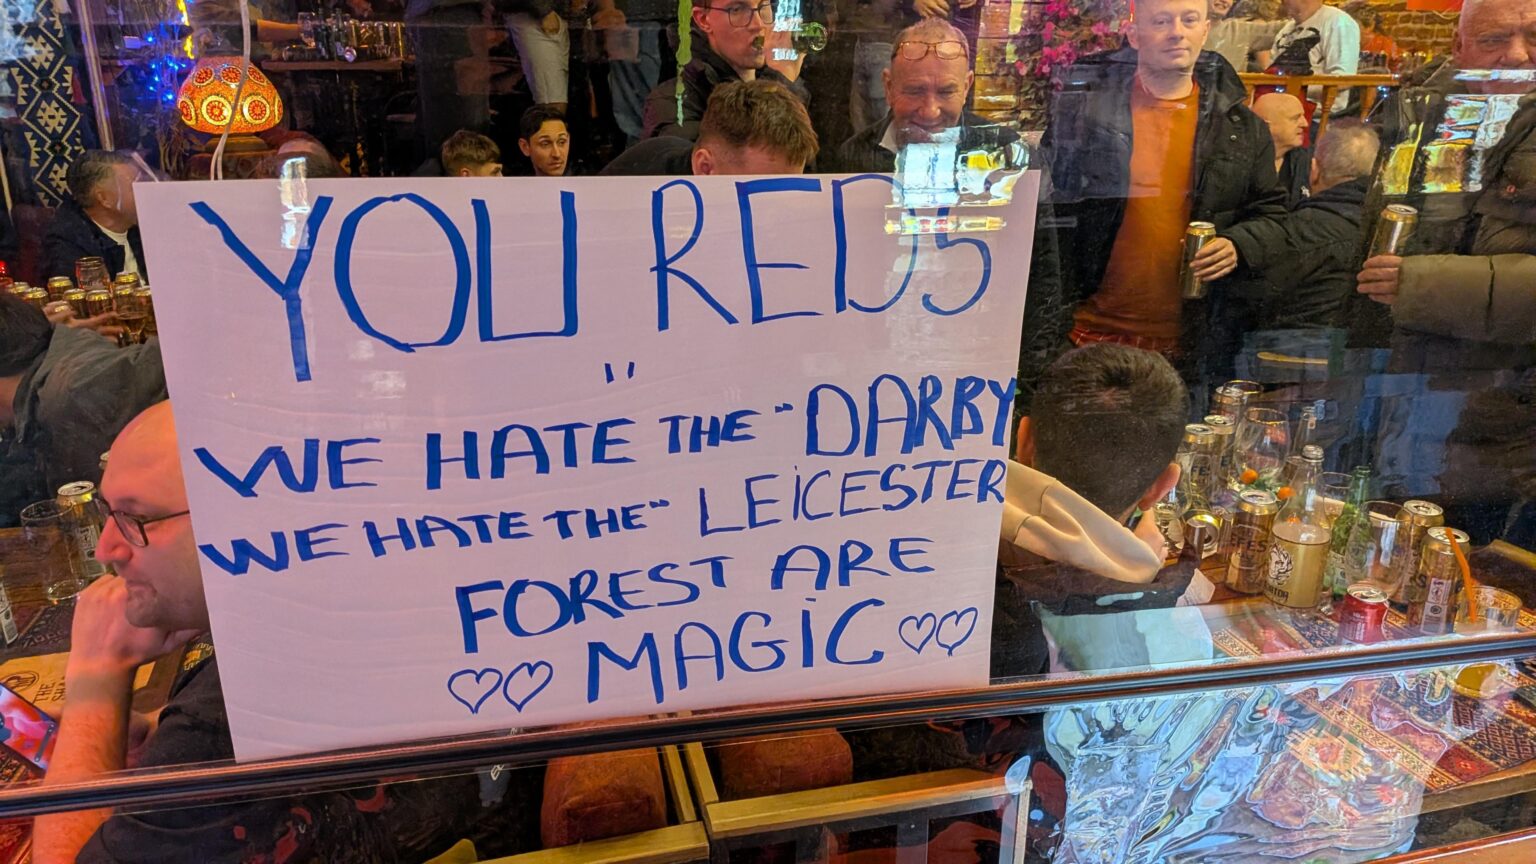 YOU REDS
"
WE HATE THE "DARBY
WE HATE THE" LEiCESTER
FOREST ARE
♡♡ MAGiC ♡♡
EFES
THE